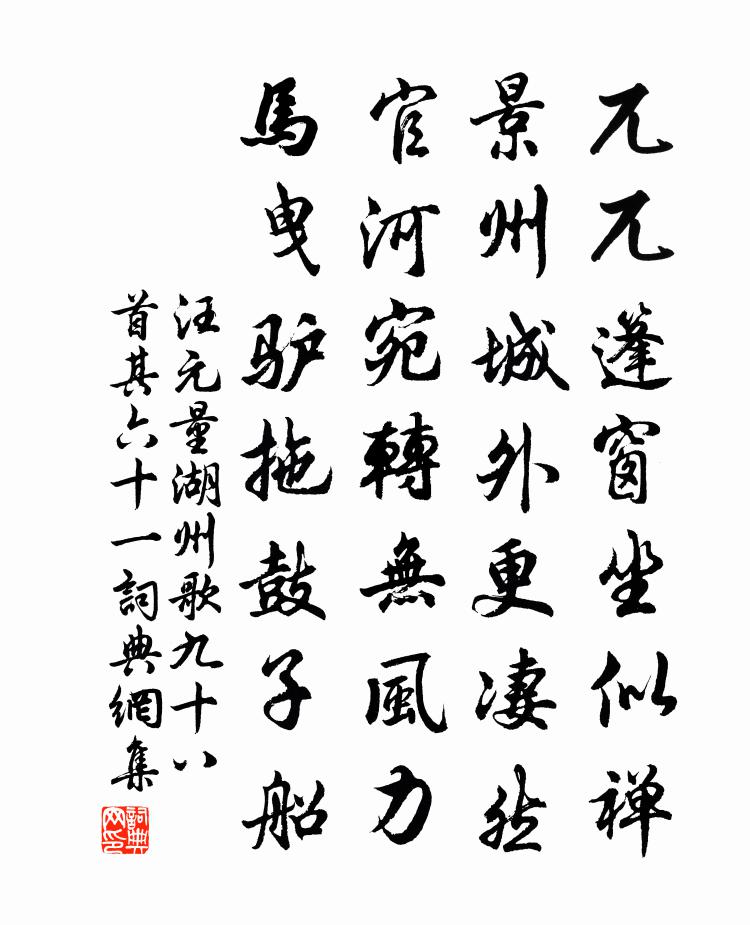 兀兀蓬窗坐似禅
景州城外更凄然
官河宛轉無風力
馬曳驴拖鼓子船
汪元量湖州歌九十八
首其六十一詞典網集
詞典网印